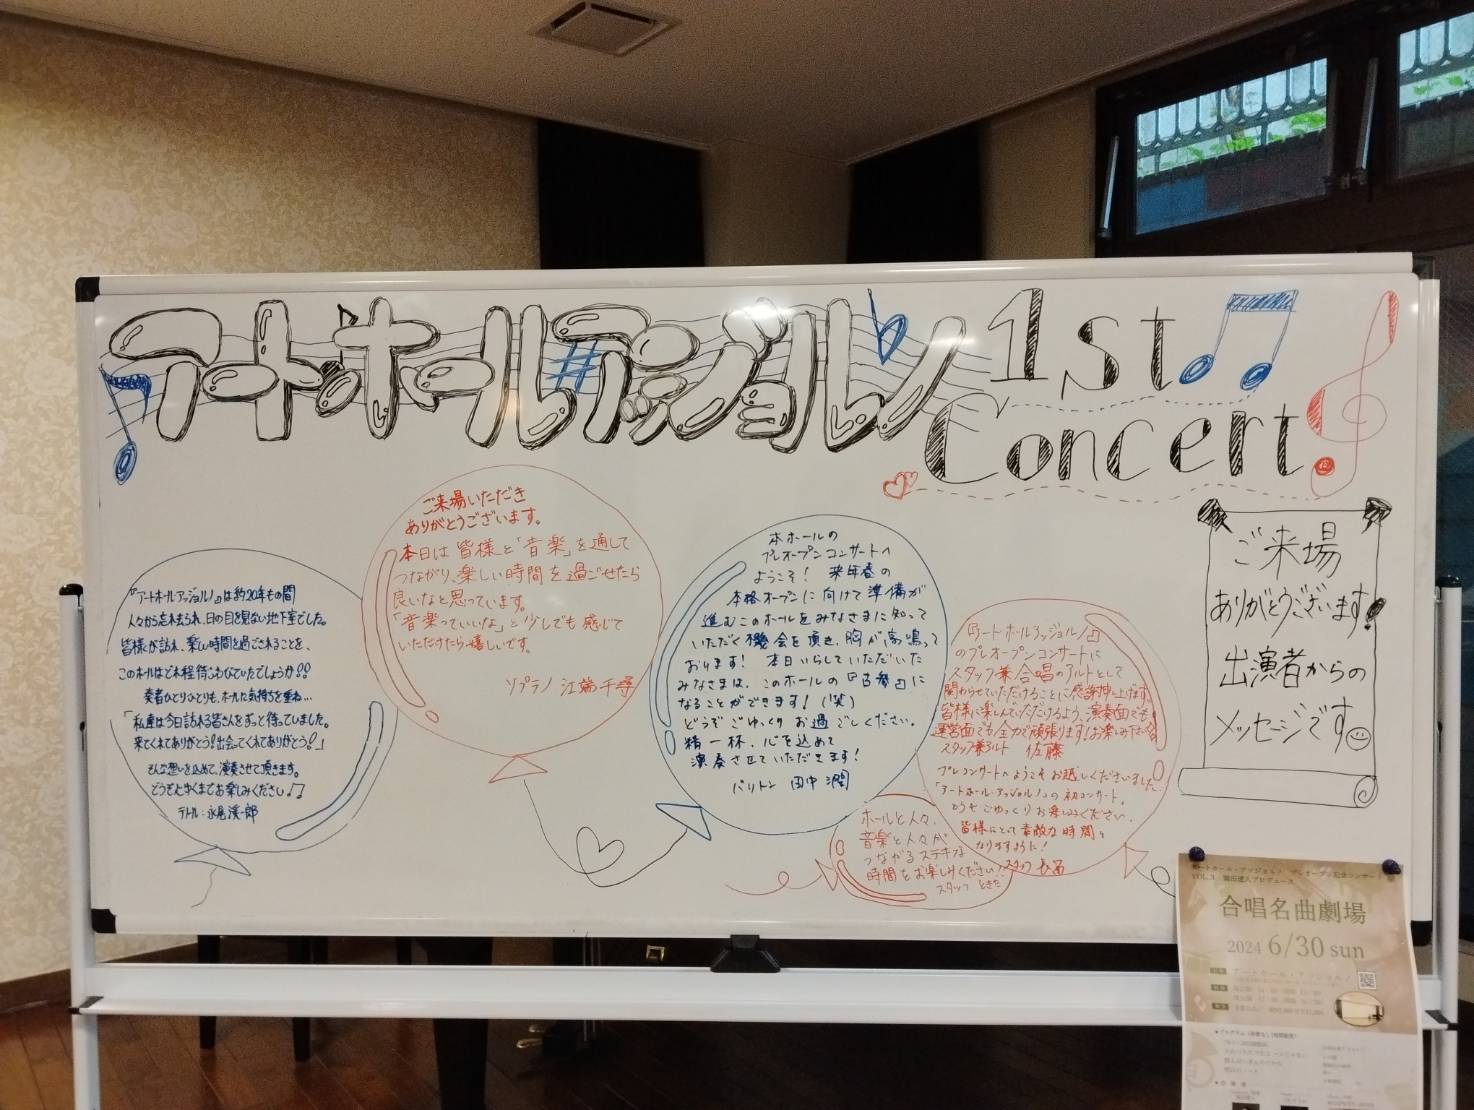 アート・ホール・アッジョルノ 1st
Concert!
『アートホールアッジョルノ』は約20年もの間
人々から忘れ去られ、日の目を見ない地下室でした。
皆様が訪れ、楽しい時間を過ごされることを、
このホールはどれ程待ちわびていたでしょうか!?
奏者ひとりひとりも、ホールに気持ちを重ね…
「私達は今日訪れる皆さんをずっと待っていました。
来てくれてありがとう!出会ってくれてありがとう!」
そんな想いを込めて、演奏させて頂きます。
どうぞごゆるりとお楽しみください♪♫
テノール:永尾渓一郎
ご来場いただき
ありがとうございます。
本日は皆様と「音楽」を通して
つながり、楽しい時間を過ごせたら
良いなと思っています。
「音楽っていいな」と少しでも感じて
いただけたら嬉しいです。
ソプラノ 江端千尋
本ホールの
プレオープンコンサートへ
ようこそ! 来年春の
本格オープンに向けて準備が
進むこのホールをみなさまに知って
いただく機会を頂き、胸が高鳴って
おります! 本日いらしていただいた
みなさまは、このホールの『古参』に
なることができます!(笑)
どうぞごゆっくりお過ごしください。
精一杯、心を込めて
演奏させていただきます!
バリトン 田中潤
『アートホールアッジョルノ』
のプレオープンコンサートに
スタッフ兼合唱のアルトとして
関わらせていただけることに感謝申し上げます。
皆様に楽しんでいただけるよう、演奏面でも
運営面でも全力で頑張ります!お楽しみ下さい
スタッフ兼アルト 佐藤
プレコンサートへようこそお越しくださいました。
「アートホール・アッジョルノ」の初コンサート。
どうぞごゆっくりお楽しみください。
皆様にとって素敵な時間と
なりますように!
ホールと人々、
音楽と人々が
つながるステキな
時間をお楽しみください!
スタッフ ときた
ご来場
ありがとうございます!
出演者からの
メッセージです
合唱名曲劇場
2024 6/30 sun
アートホール・アッジョルノ